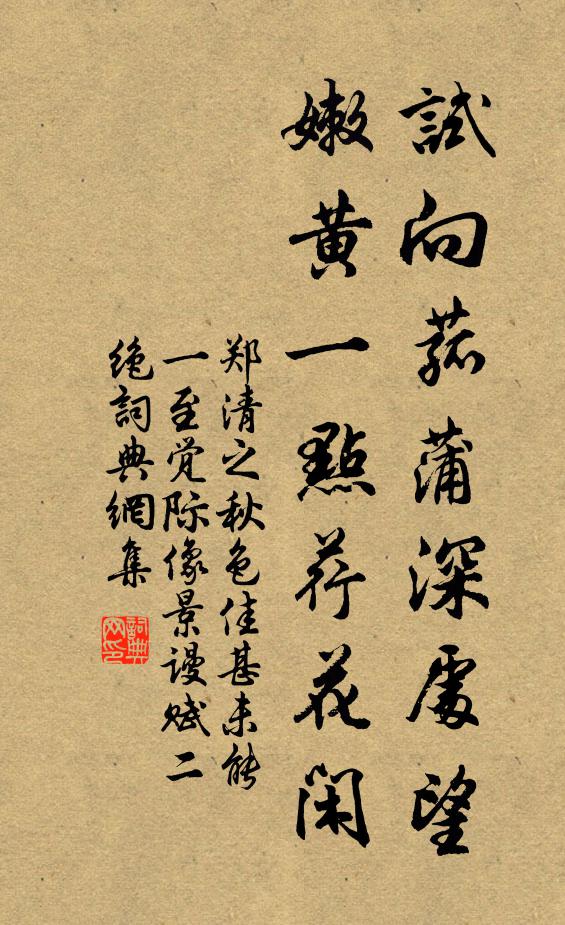 試向菰蒲深處望
嫩黄一點荇花閑
郑清之秋色佳甚未能
一至觉际像景谩赋二
绝詞典網集
詞典
网印